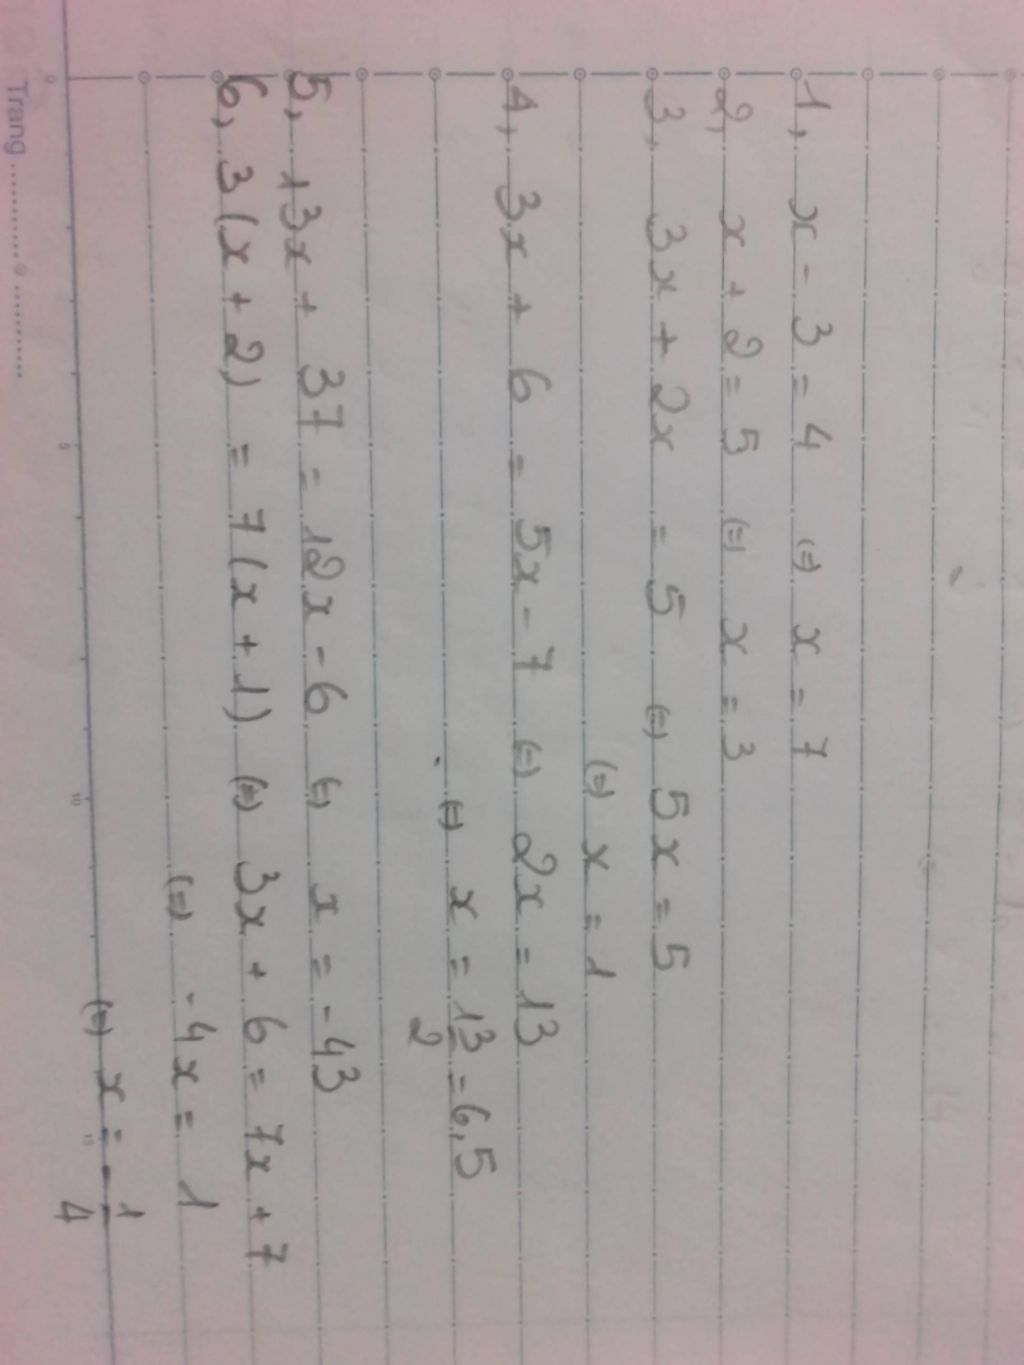 1, x - 3 = 4 (=) x = 7
2, x + 2 = 5 (=) x = 3
3, 3x + 2x = 5 (=) 5x = 5
(=) x = 1
4, 3x + 6 = 5x - 7 (=) 2x = 13
(=) x = 13/2 = 6,5
5, 13x + 37 = 12x - 6 (=) x = -43
6, 3(x + 2) = 7(x + 1) (=) 3x + 6 = 7x + 7
(=) -4x = 1
(=) x = -1/4
0 5 10 15
Trang